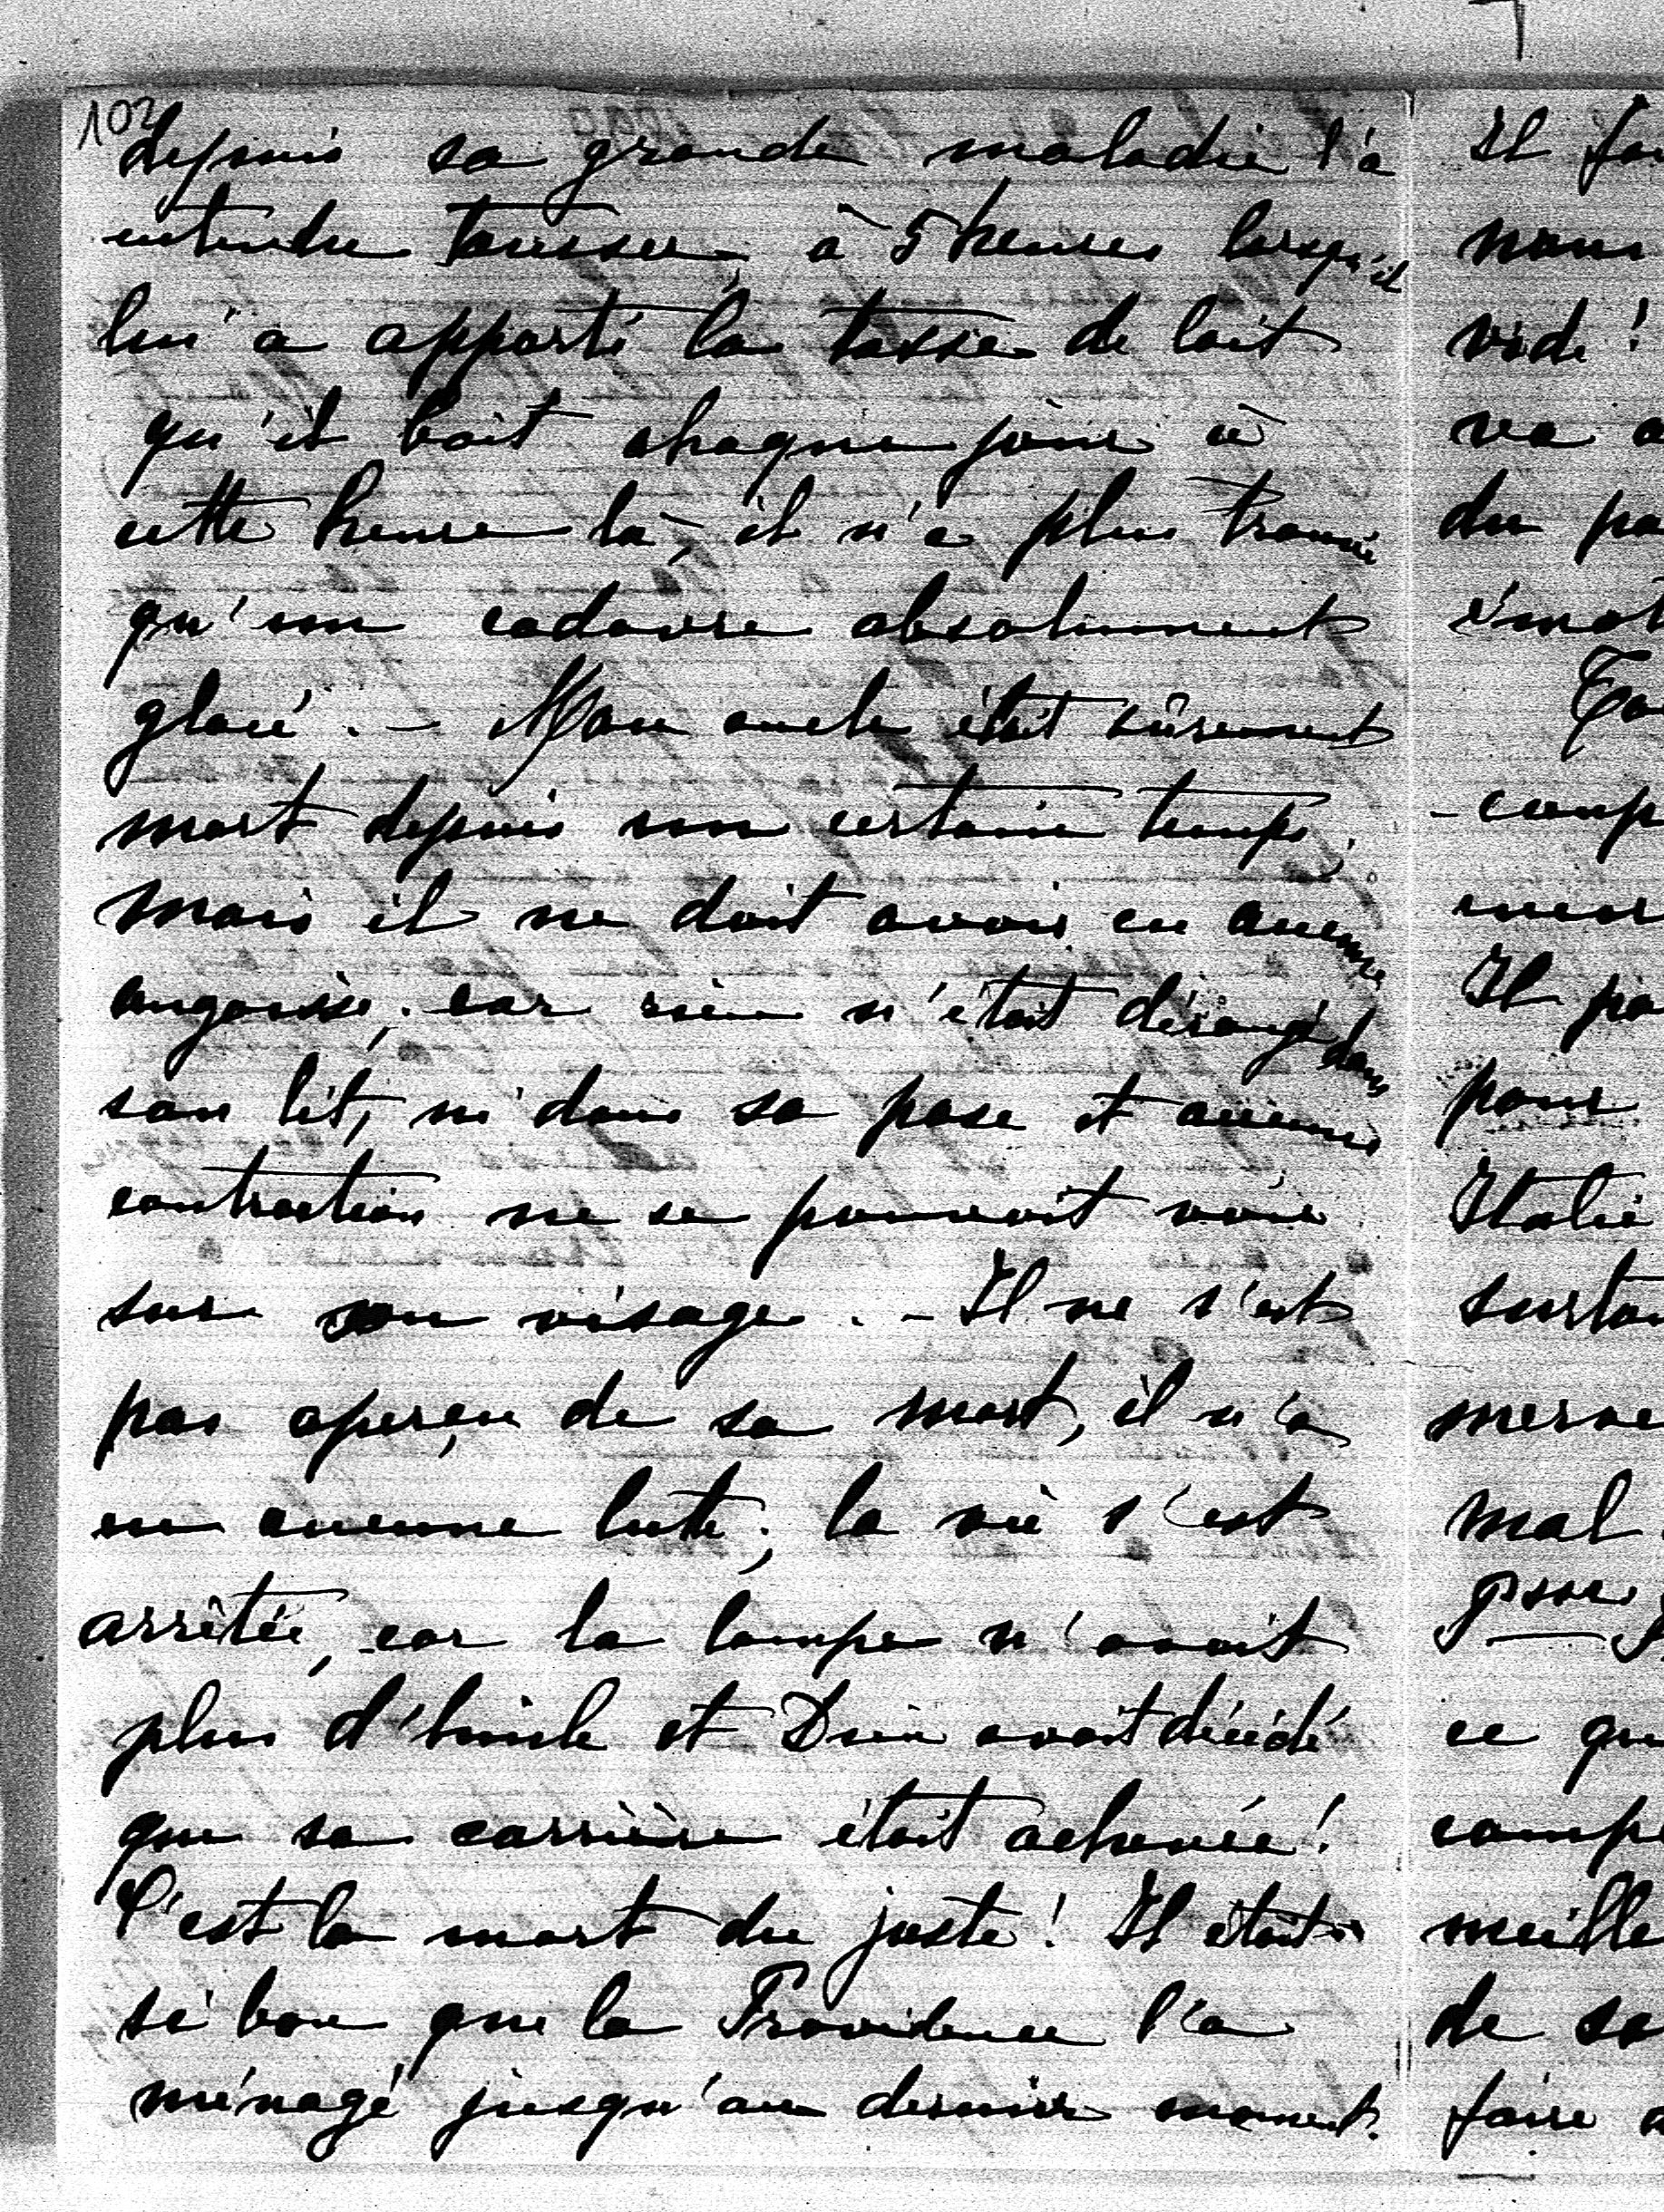 102
depuis sa grande maladie l'a
entendu tousser; à 5 heures lorsqu'il
lui a apporté la tasse de lait
qu'il boit chaque jour à
cette heure là, il n'a plus trouvé
qu'un cadavre absolument
glacé. - Mon oncle était sûrement
mort depuis un certain temps;
mais il ne doit avoir eu aucune
angoisse, car rien n'était dérangé dans
son lit, ni dans sa pose et aucune
contraction ne se pouvait voir
sur son visage. - Il ne s'est
pas aperçu de sa mort, il n'a
eu aucune lutte; la vie s'est
arrêtée, car la lampe n'avait
plus d'huile et Dieu avait décidé
que sa carrière était achevée!
C'est la mort du juste! Il était
si bon que la Providence l'a
ménagé jusqu'au dernier moment.
Il
vide!
va
du
pour
Italie
mal
ce
de
faire